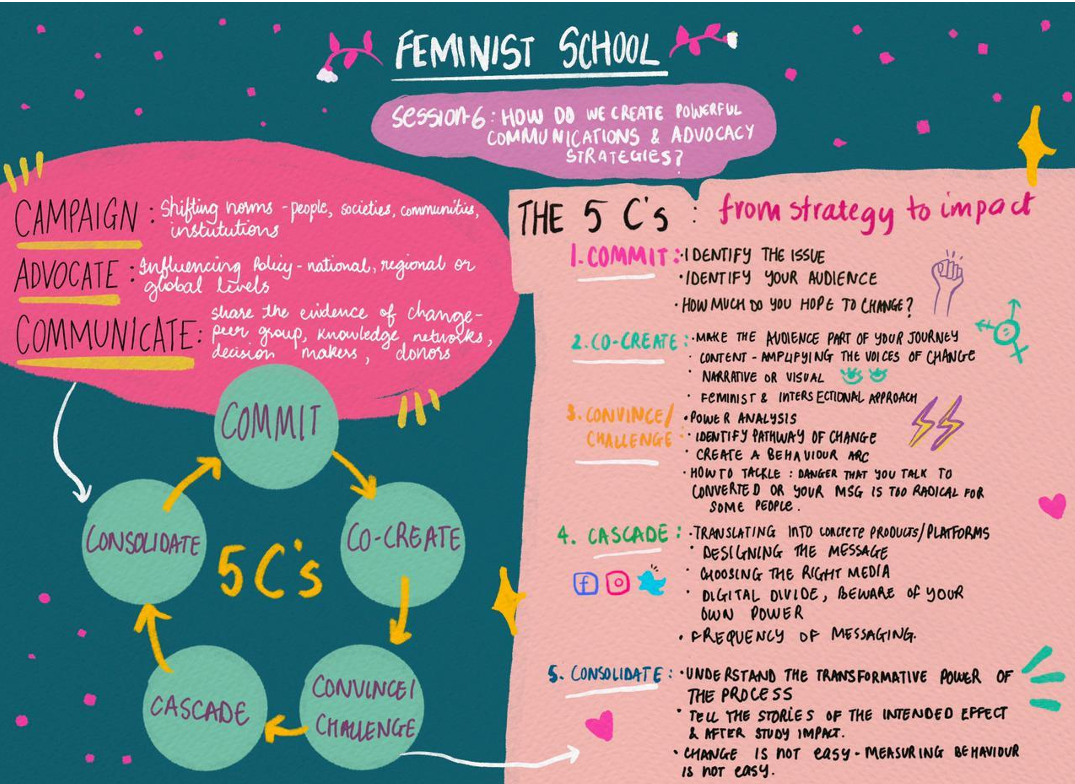 FEMINIST SCHOOL
SESSION-6: HOW DO WE CREATE POWERFUL
COMMUNICATIONS & ADVOCACY
STRATEGIES?
CAMPAIGN: Shifting norms - people, societies, communities,
institutions
ADVOCATE: Influencing Policy - national, regional or
global levels
COMMUNICATE: share the evidence of change-
peer group, knowledge networks,
decision makers, donors
COMMIT
CO-CREATE
CONVINCE/
CHALLENGE
CASCADE
CONSOLIDATE
5C's
THE 5 C's: from strategy to impact
1. COMMIT: · IDENTIFY THE ISSUE
· IDENTIFY YOUR AUDIENCE
· HOW MUCH DO YOU HOPE TO CHANGE?
2. CO-CREATE: · MAKE THE AUDIENCE PART OF YOUR JOURNEY
· CONTENT - AMPLIFYING THE VOICES OF CHANGE
· NARRATIVE OR VISUAL
· FEMINIST & INTERSECTIONAL APPROACH
3. CONVINCE/ · POWER ANALYSIS
CHALLENGE: · IDENTIFY PATHWAY OF CHANGE
· CREATE A BEHAVIOUR ARC
· HOW TO TACKLE: DANGER THAT YOU TALK TO
CONVERTED OR YOUR MSG IS TOO RADICAL FOR
SOME PEOPLE.
4. CASCADE: · TRANSLATING INTO CONCRETE PRODUCTS/PLATFORMS
· DESIGNING THE MESSAGE
· CHOOSING THE RIGHT MEDIA
· DIGITAL DIVIDE, BEWARE OF YOUR
OWN POWER
· FREQUENCY OF MESSAGING.
5. CONSOLIDATE: · UNDERSTAND THE TRANSFORMATIVE POWER OF
THE PROCESS
· TELL THE STORIES OF THE INTENDED EFFECT
& AFTER STUDY IMPACT.
· CHANGE IS NOT EASY - MEASURING BEHAVIOUR
IS NOT EASY.